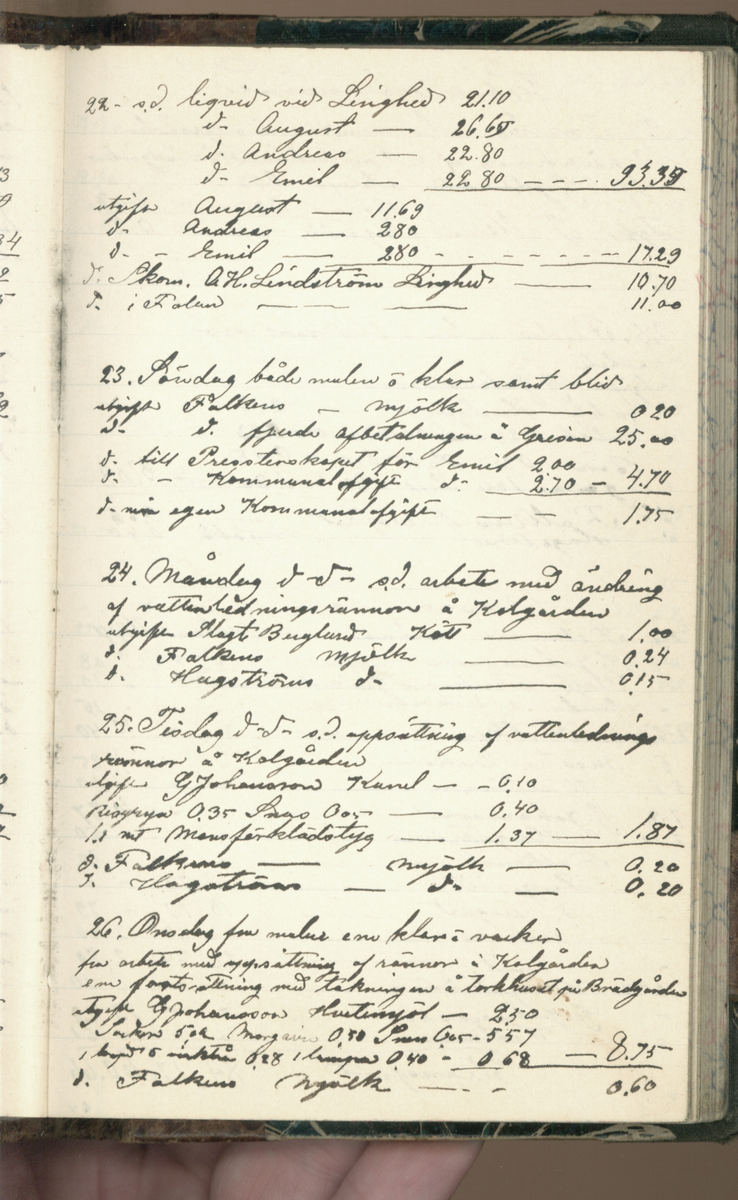 22 - s.d. liqvid vid Linghed 21.10
d- August — 26.65
d. Andreas — 22.80
d- Emil — 22.80 - - - . 93.35
utgift August — 11.69
d- Andreas — 280
d- - Emil — 280 - - - - - - - 17.29
d. Skom. A.H. Lindström Linghed — 10.70
d. i Falun — — — 11.00
23. Söndag både mulen o klar samt blid
utgift Falkens — mjölk — 0 20
d- d. fjerde afbetalningen å Grisen 25.00
d- till Presterskapet för Emil 2.00
d- - Kommunalafgift d- 2.70 — 4.70
d- min egen Kommunalafgift — — 1.75
24. Måndag d - d - s.d. arbete med ändring
af vattenledningsrännor å Kolgården
utgift Slagt Berglund Kött — 1.00
d. Falkens mjölk — 0.24
d. Hagströms d- — 0.15
25. Tisdag d - d - s.d. uppsättning af vattenlednings
rännor å Kolgården
utgift G Johansson Kanel — - 0.10
Risgryn 0.35 Snus 0.05 — 0.40
1.1 mt Mansförklädstyg — 1.37 — 1.87
d. Falkens — mjölk — 0.20
d. Hagströms — d- — 0.20
26. Onsdag fm mulet em klar o vacker
fm arbete med uppsättning af rännor i Kolgården
em fortsättning med täkningen å torkhuset på Brädgården
utgift G Johansson Hvetemjöl — 2.50
Socker 5.02 Margarin 0.50 Snus 0.05 - 5.57
0.28 1 limpa 0.40 - 0.68 — 8.75
d. Falkens Mjölk — - - - 0.60